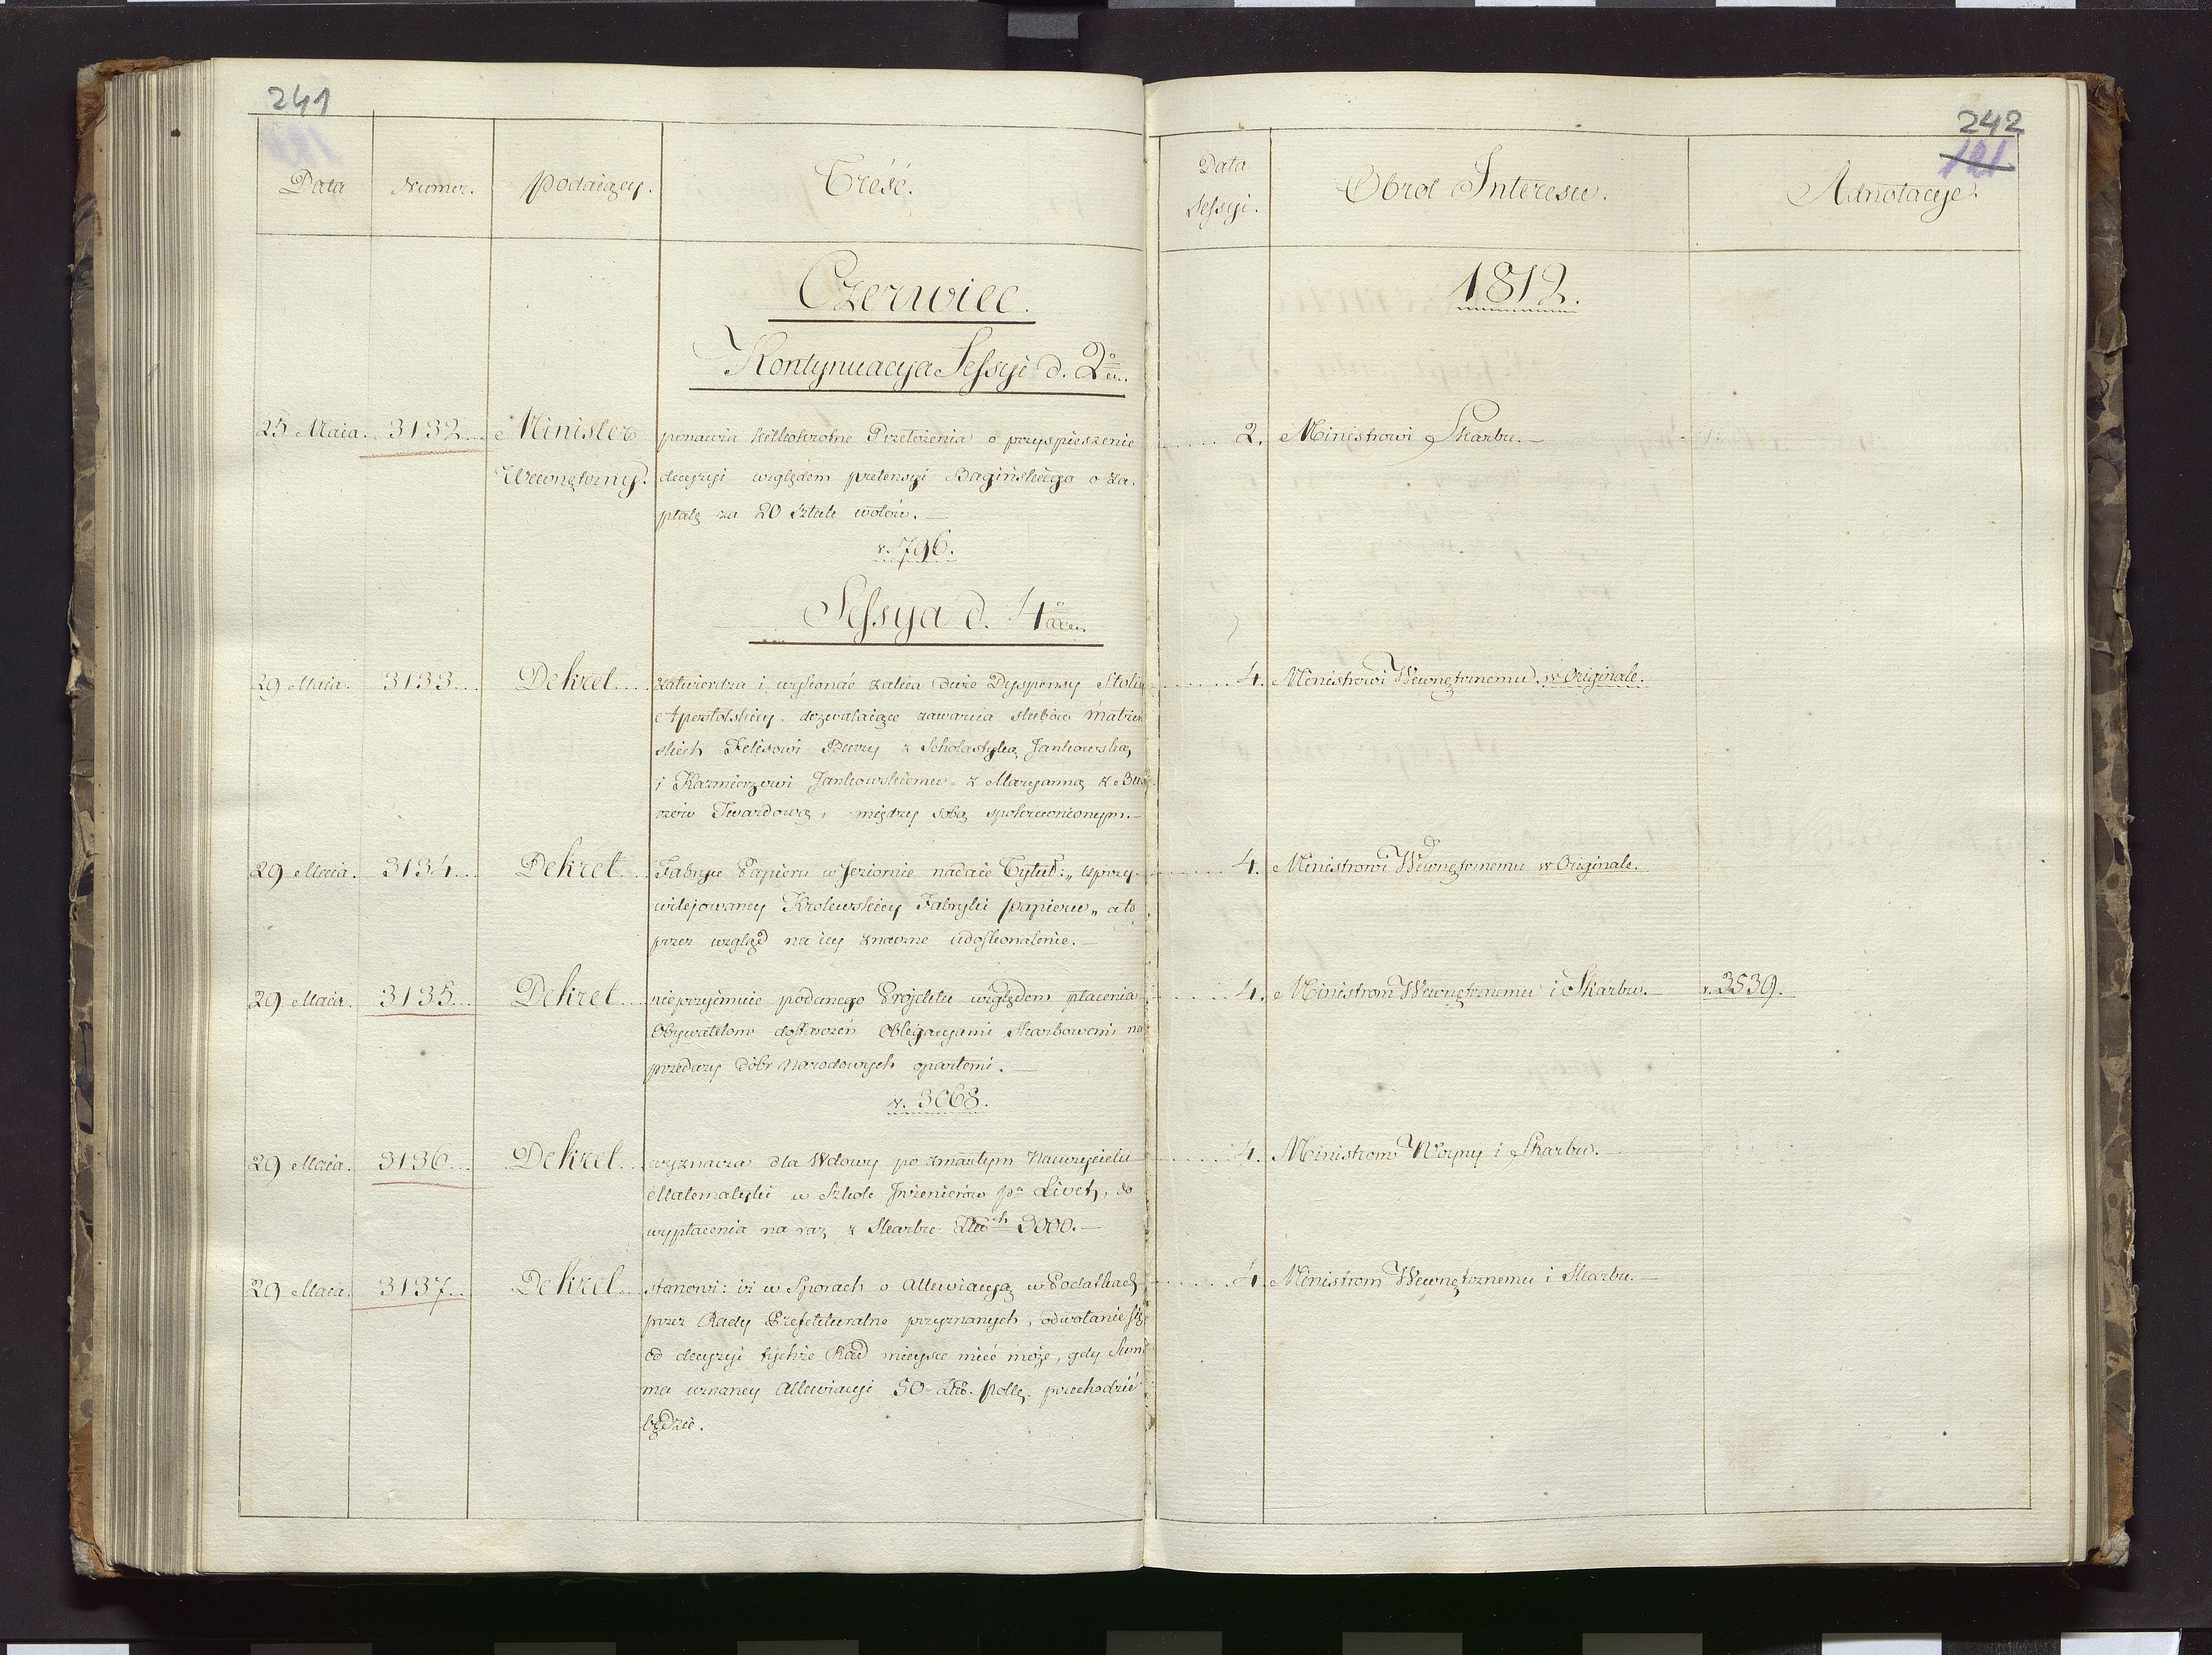 241
242
121
Data Numer. Podaiący. Treść. Data Sessyi. Obrot Interesu. Adnotacye.
Czerwiec. 1812.
Kontynuacya Sessyi d. 2°
25 Maia. 3132... Minister ponawia kilkokrotne Przełożenia o przyspieszenie ..... 2. Ministrowi Skarbu.—
Wewnętrzny. decyzyi względem pretensyi Bagińskiego o za-
płatę za 20 sztuk wołów.—
v. 796.
Sessya d. 4
29 Maia. 3133... Dekret.... zatwierdza i wykonać zaleca dwie Dyspensy Stolicy ..... 4. Ministrowi Wewnętrznemu. w Originale.
Apostolskiey. dozwalaiące zawarcia slubów małżeń
skich Felixowi Burzy z Scholastyką Jankowską,
i Kazmierzowi Jankowskiemu z Maryanną z Bu
rzów Twardową, między sobą spokrewnionym.—
29 Maia. 3134... Dekret... Fabryce Papieru w Jeziornie nadaie Tytuł: „uprzy- ..... 4. Ministrowi Wewnętrznemu w Originale.
wilejowaney Krolewskiey Fabryki papieru„ a to
przez wzgląd na iey znaczne udoskonalenie.—
29 Maia. 3135... Dekret.... nieprzyimuie podanego Projektu względem płacenia ..... 4. Ministrom Wewnętrznemu i Skarbu.— v. 3539.
Obywatelom dostarczeń Obligacyami Skarbowemi na
przedaży dóbr Narodowych opartemi.—
v. 3068.
29 Maia. 3136... Dekret... wyznacza dla Wdowy po zmarłym Nauczycielu ..... 4. Ministrom Woyny i Skarbu.—
Matematyki w Szkole Inżenierów Livet, do
wypłacenia na raz z Skarbu Złłch 3000.—
29 Maia. 3137... Dekret... stanowi: iż w Sporach o Allewiacyą w Podatkach ..... 4. Ministrom Wewnętrznemu i Skarbu.—
przez Rady Prefekturalne przyznanych, odwołanie się
od decyzyi tychże Rad mieysce mieć może, gdy Sum
ma uznaney Allewiacyi 50 Złł. Polls. przechodzić
będzie.